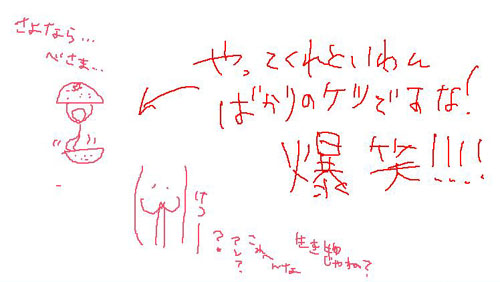 さよなら…
べさま…
やってくれといわん
ばかりのケツですな!
爆笑!!!!
けつ
?
?
アレ?
これ
んな
生き物
じゃね?